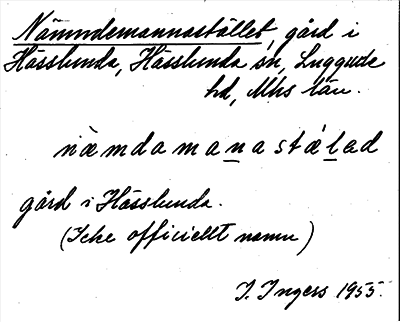 Nämndemannastället, gård i
Hässlunda, Hässlunda sn, Luggude
hd, Mhs län.
nàmdamanastálad
gård i Hässlunda.
(Icke officiellt namn)
I. Ingers 1955.